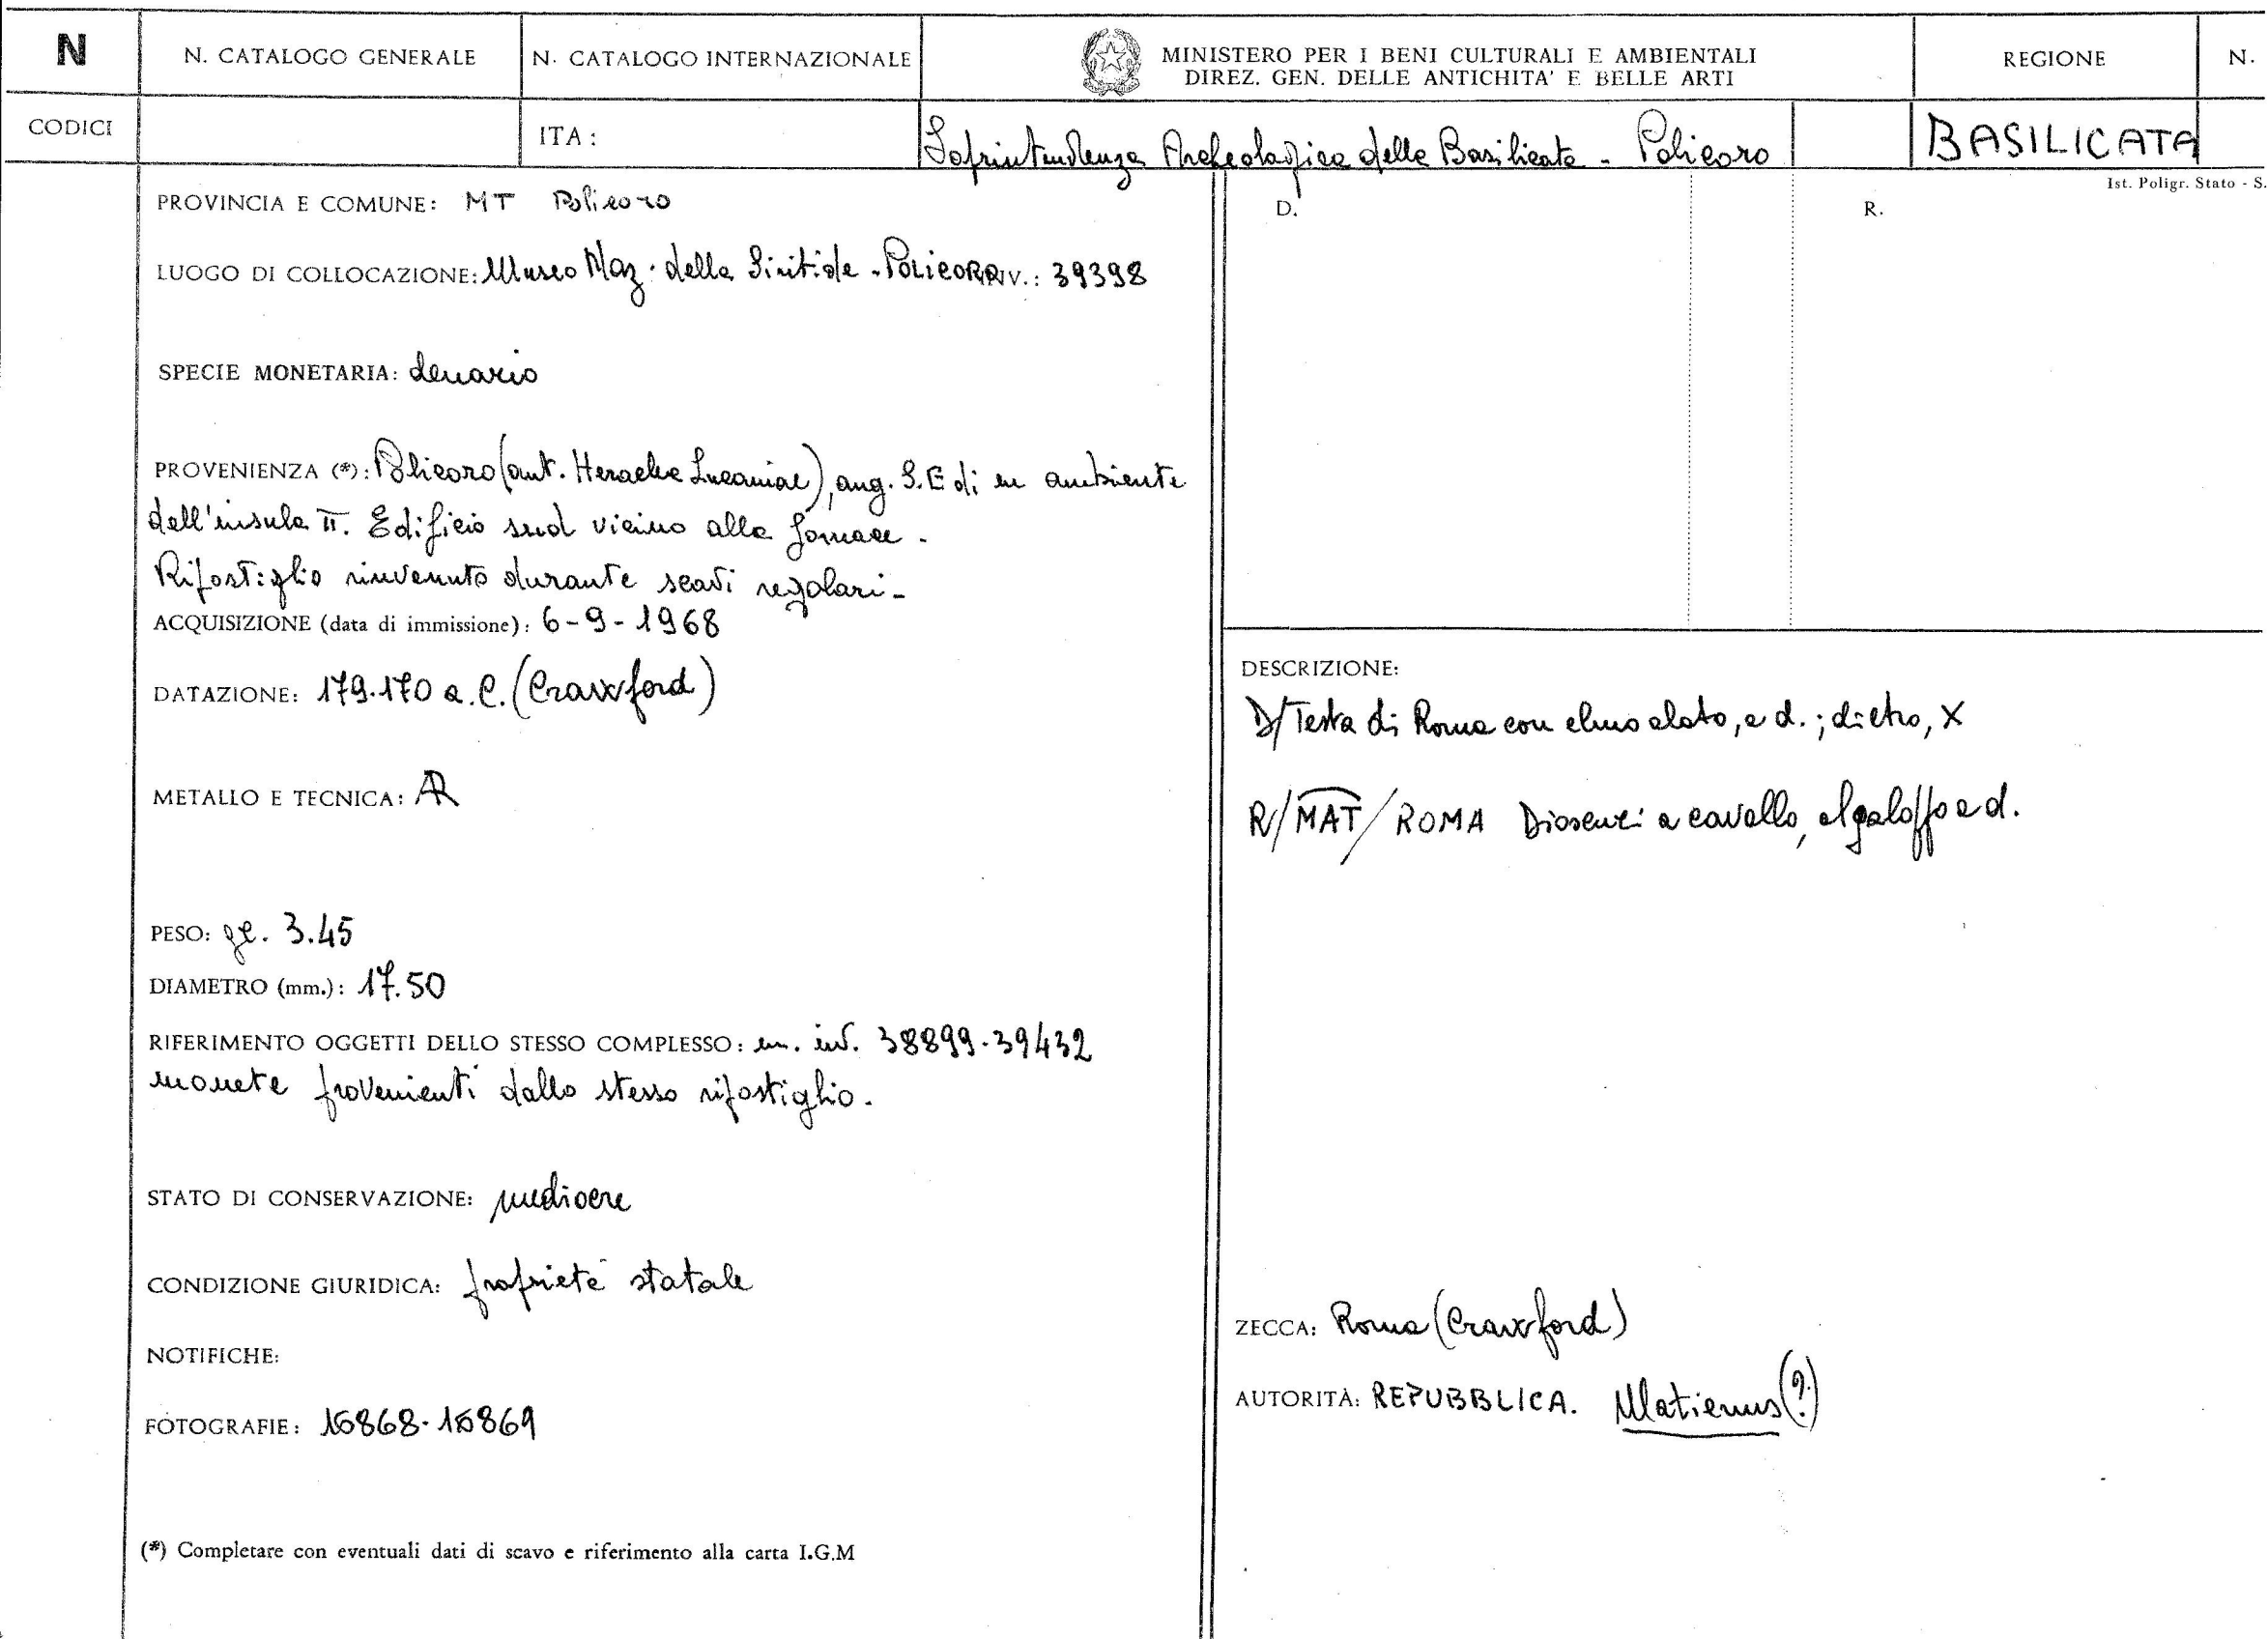 N
N. CATALOGO GENERALE
N. CATALOGO INTERNAZIONALE
MINISTERO PER I BENI CULTURALI E AMBIENTALI
DIREZ. GEN. DELLE ANTICHITA' E BELLE ARTI
REGIONE
N.
CODICI
ITA:
Soprintendenza Archeologica della Basilicata - Policoro
BASILICATA
Ist. Poligr. Stato - S.
PROVINCIA E COMUNE: MT Policoro
LUOGO DI COLLOCAZIONE: Museo Naz. della Siritide - POLICORO INV.: 39398
SPECIE MONETARIA: denario
PROVENIENZA (*): Policoro (ant. Heraclea Lucaniae), ang. S.E di un ambiente
dell'insula II. Edificio sud vicino alla fornace -
Ripostiglio rinvenuto durante scavi regolari -
ACQUISIZIONE (data di immissione): 6-9-1968
DATAZIONE: 179-170 a.C. (Crawford)
METALLO E TECNICA: AR
PESO: gr. 3.45
DIAMETRO (mm.): 17.50
RIFERIMENTO OGGETTI DELLO STESSO COMPLESSO: nn. inv. 38899-39432
monete provenienti dallo stesso ripostiglio.
STATO DI CONSERVAZIONE: mediocre
CONDIZIONE GIURIDICA: proprietà statale
NOTIFICHE:
FOTOGRAFIE: 16868-16869
(*) Completare con eventuali dati di scavo e riferimento alla carta I.G.M
D.
R.
DESCRIZIONE:
D/ Testa di Roma con elmo alato, a d.; dietro, X
R/ MAT / ROMA Dioscuri a cavallo, al galoppo a d.
ZECCA: Roma (Crawford)
AUTORITÀ: REPUBBLICA. Matienus (?)